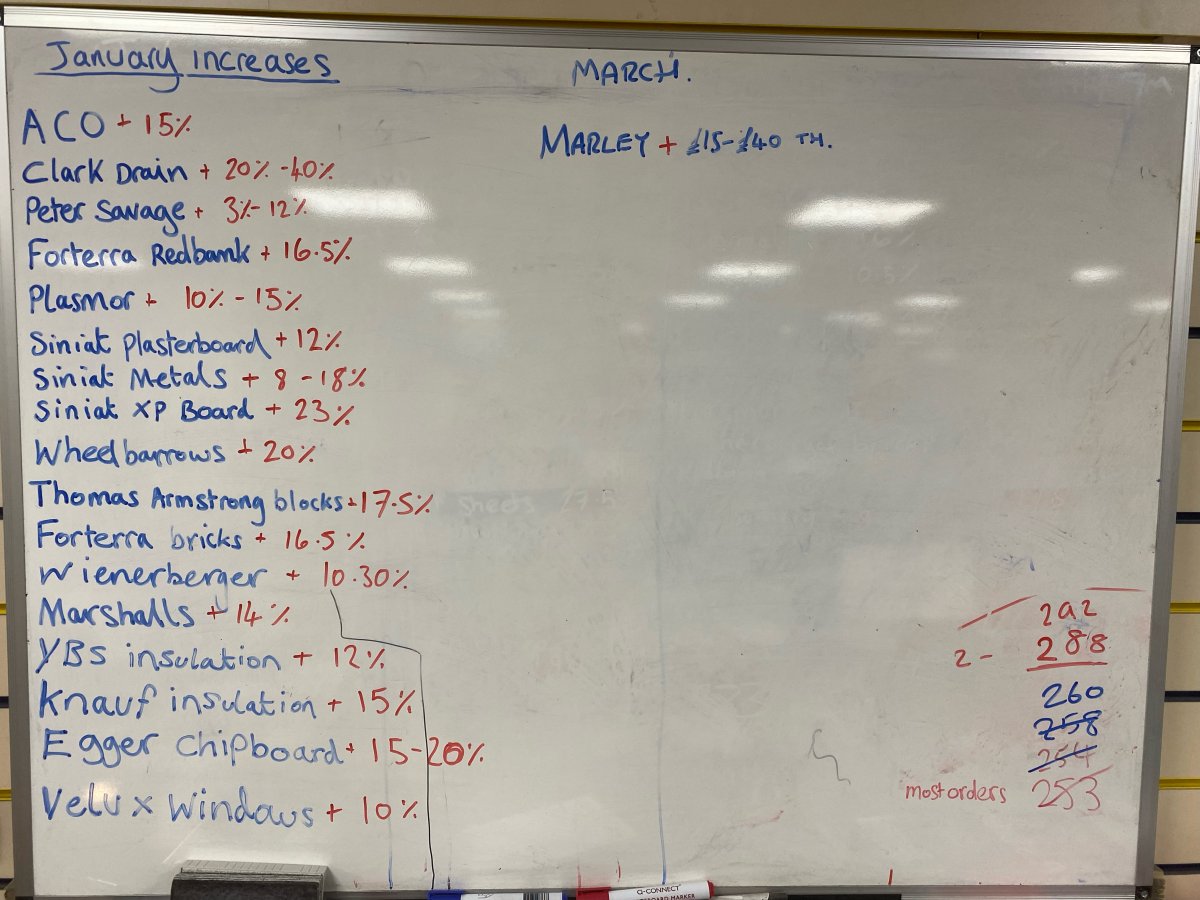 January increases
ACO + 15%
Clark Drain + 20% - 40%
Peter Savage + 3% - 12%
Forterra Redbank + 16.5%
Plasmor + 10% - 15%
Siniat plasterboard + 12%
Siniat Metals + 8 - 18%
Siniat XP Board + 23%
Wheelbarrows + 20%
Thomas Armstrong blocks + 17.5%
Forterra bricks + 16.5%
Wienerberger + 10.30%
Marshalls + 14%
YBS insulation + 12%
Knauf insulation + 15%
Egger Chipboard + 15-20%
Velux Windows + 10%
MARCH.
MARLEY + £15-£40 TH.
292
2 - 288
260
258
254
most orders 253
Q-CONNECT